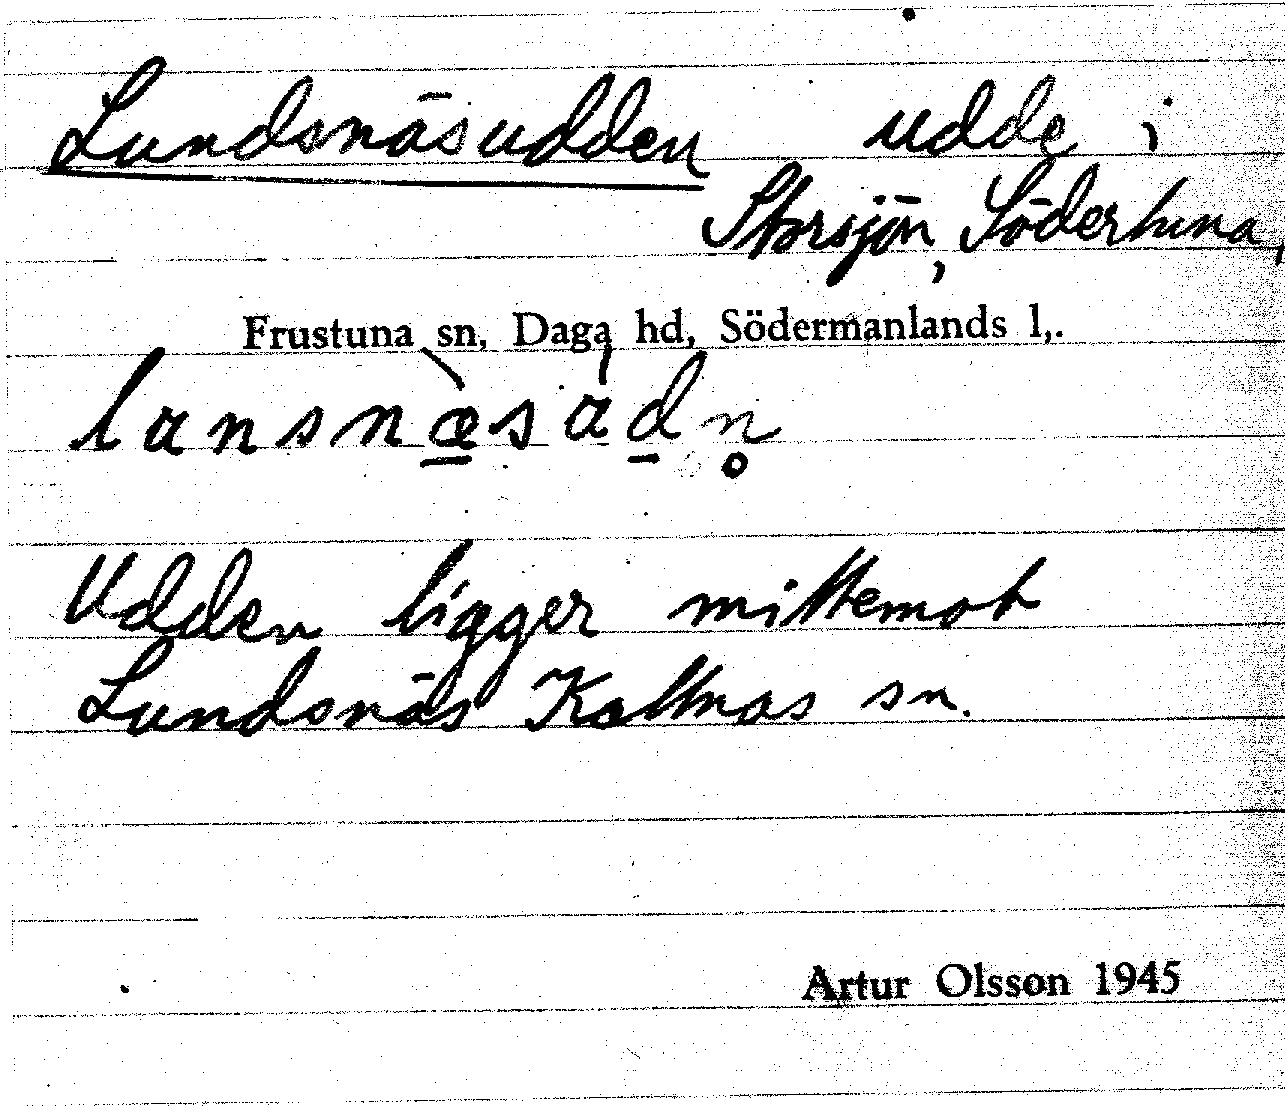 Lundsnäsudden udde i
Storsjön, Södertuna,
Frustuna sn, Daga hd, Södermanlands l,.
Udden ligger mittemot
Lundsnäs Kattnäs sn.
Artur Olsson 1945